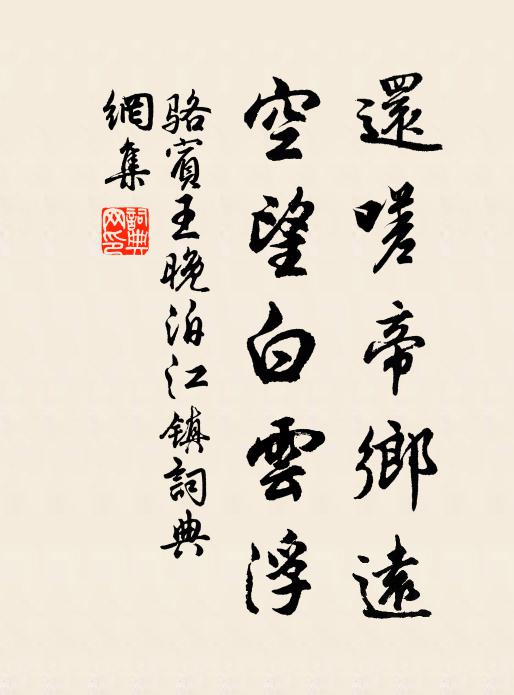 還嗟帝鄉遠
空望白雲浮
駱賓王晚泊江鎮詞典
網集
詞典网印